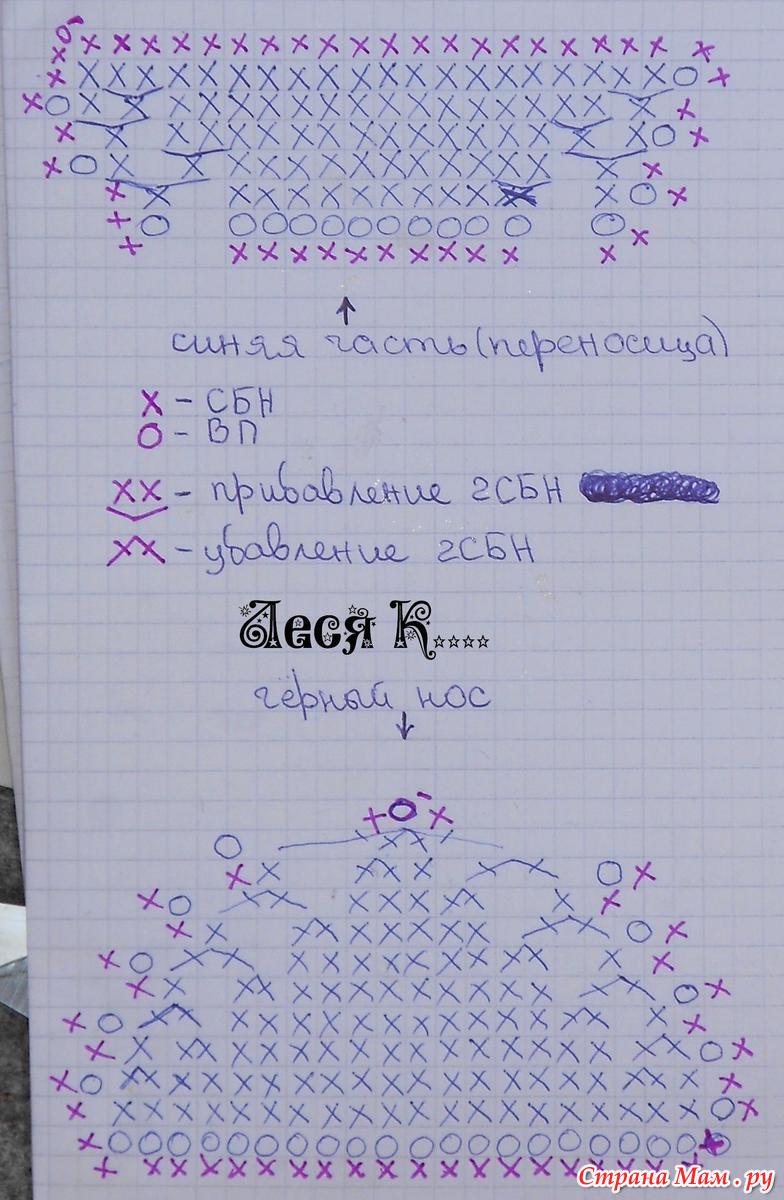 синяя часть (переносица)
х - СБН
о - ВП
хх - прибавление 2СБН
хх - убавление 2СБН
Леся К....
чёрный нос
Страна Мам.ру